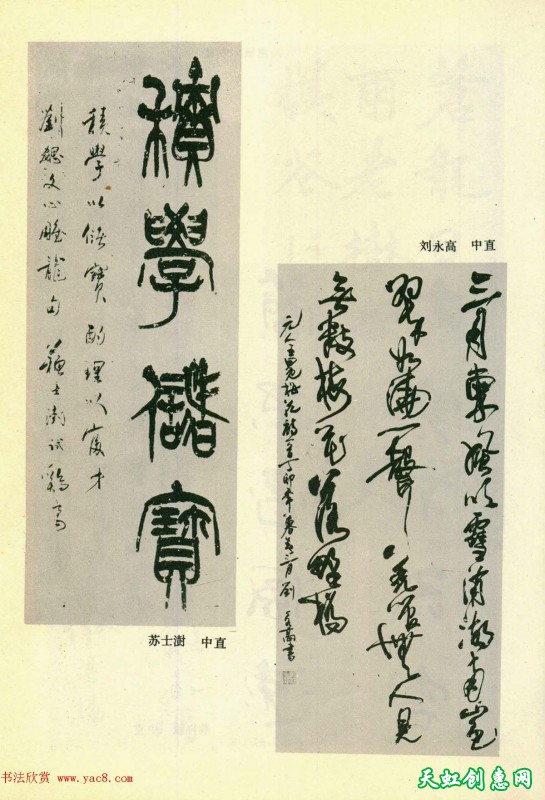 積學儲寶
積學以儲寶酌理以富才
劉勰文心雕龍句蘇士澍試鷄毫
苏士澍 中直
刘永高 中直
三月東風吹雪消湖南山色
翠如澆一聲羌管無人見
無數梅花落野橋
元人王冕梅花詩丁卯年暮春三月劉永高書
书法欣赏 www.yac8.com
天虹创意网